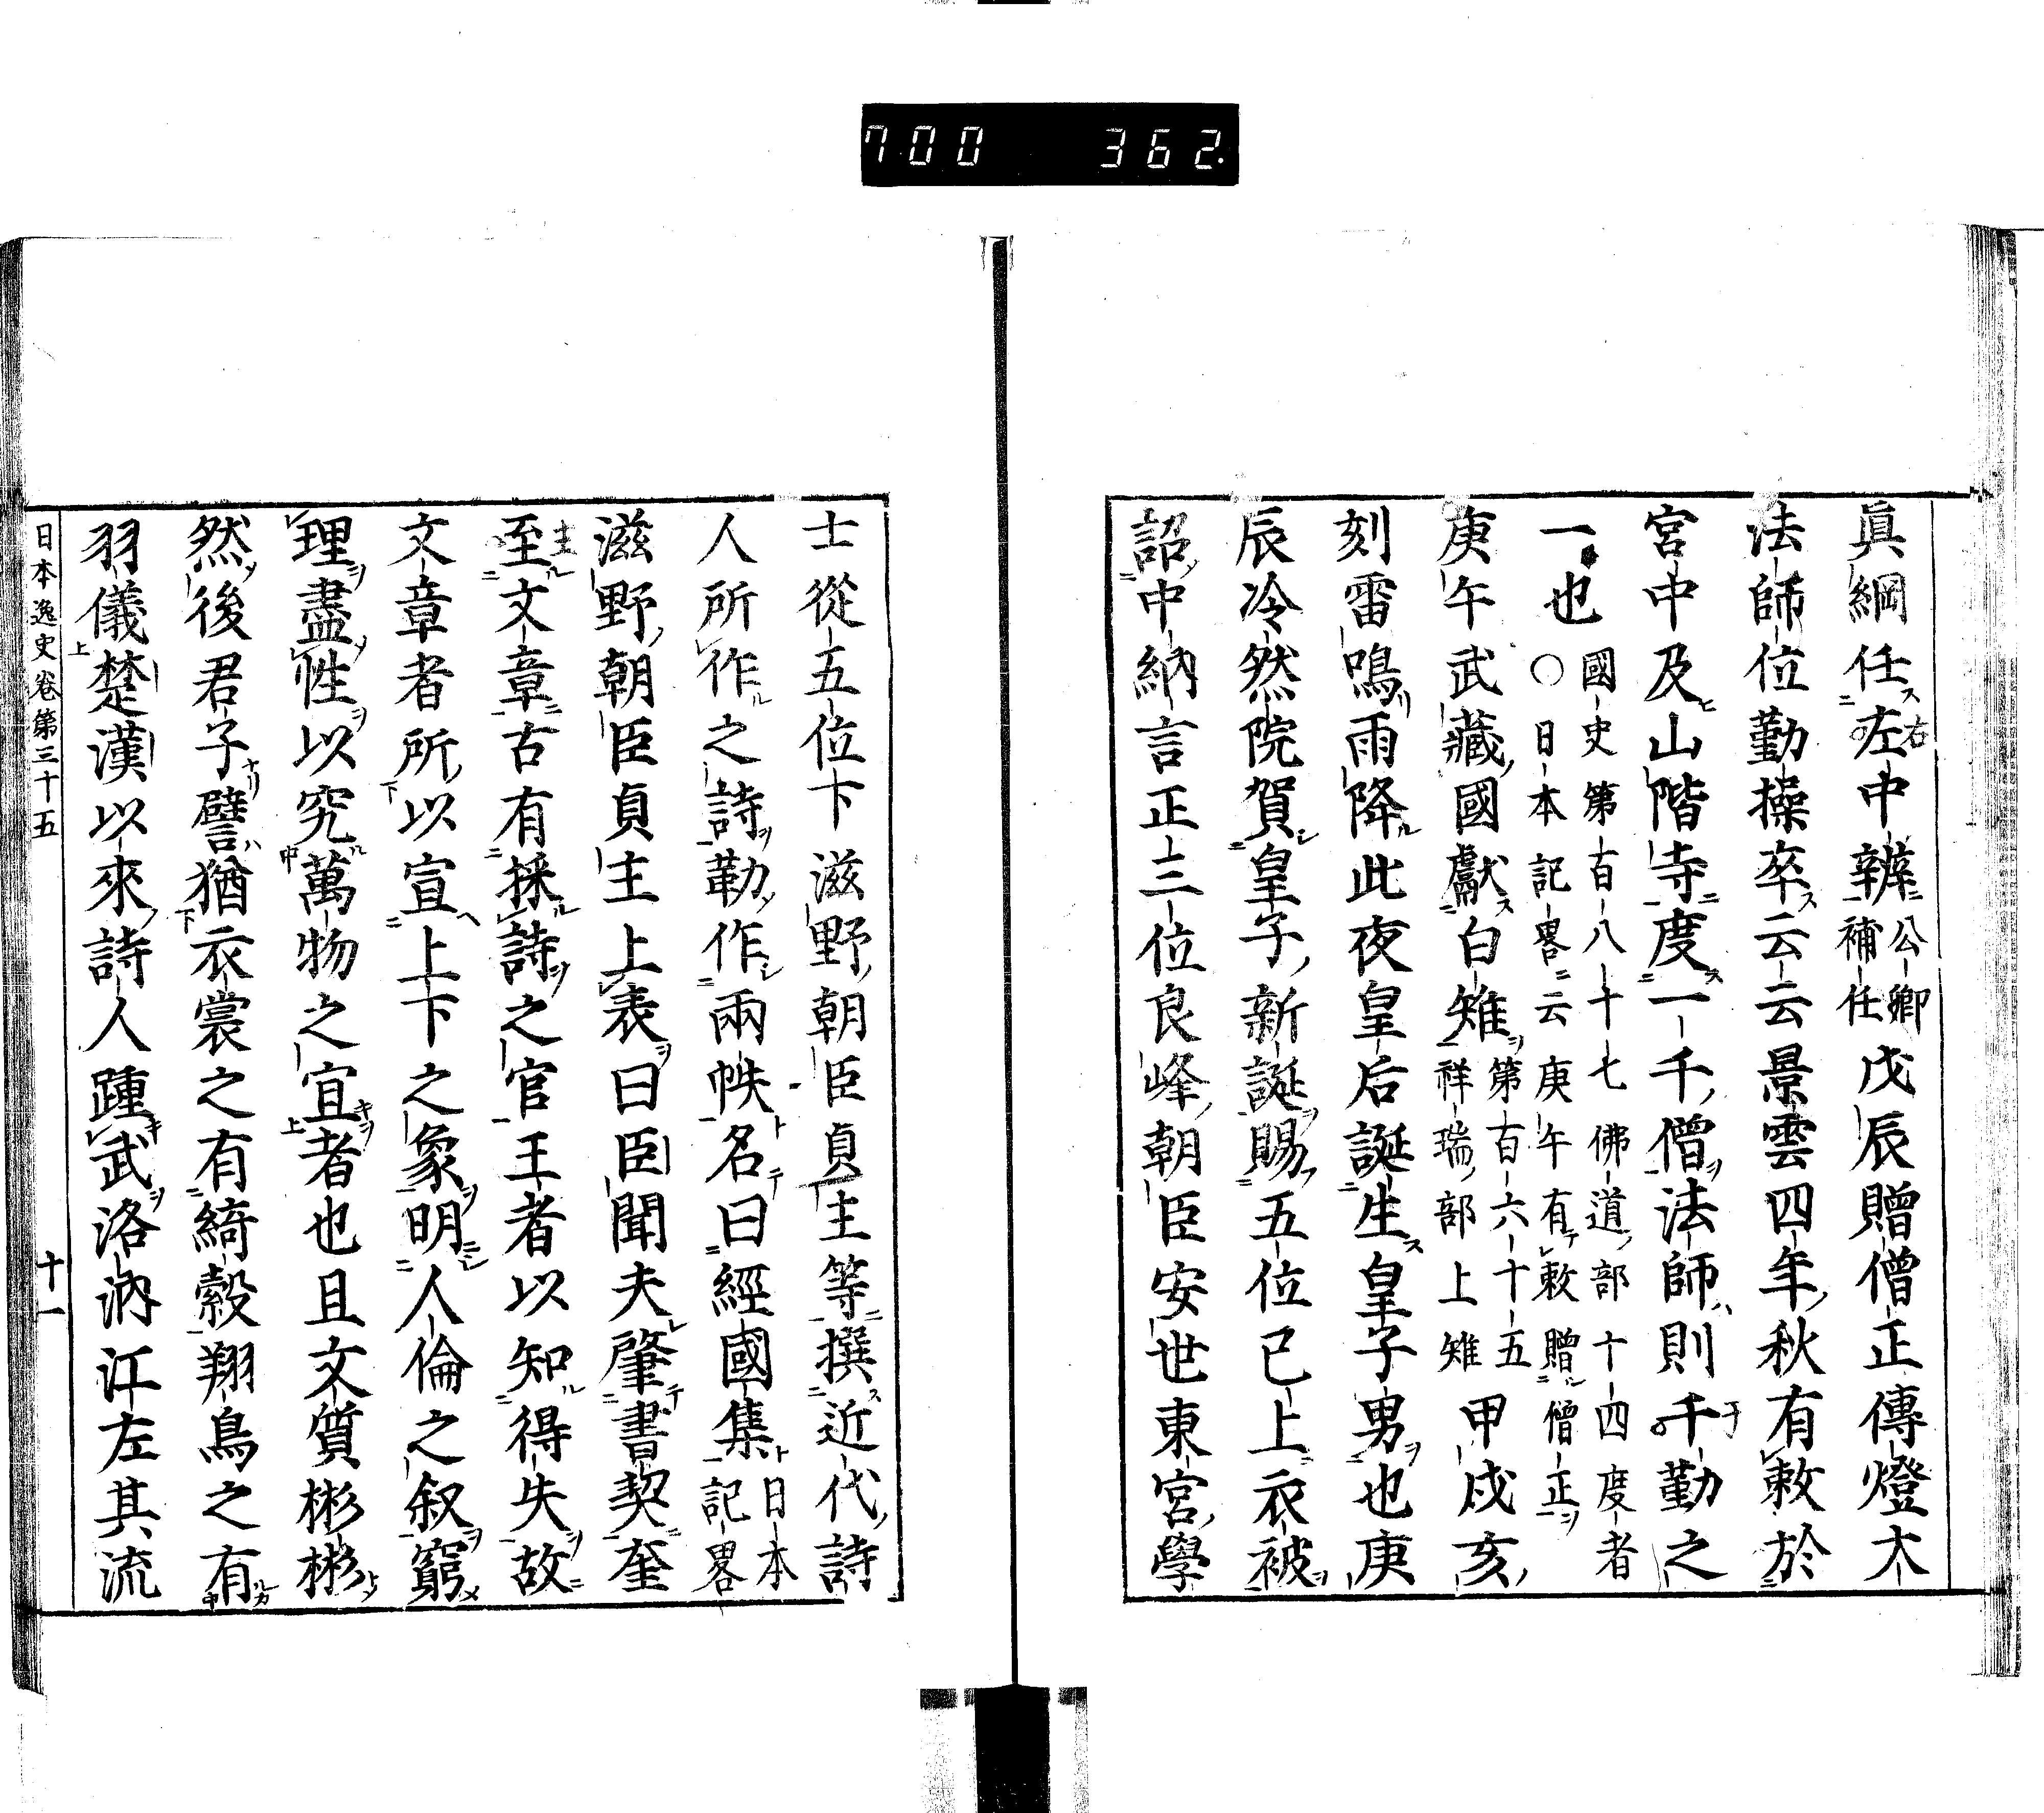 700 362.
眞綱任左中辨公卿補任戊辰贈僧正傳燈大
法師位勤操卒云云景雲四年秋有敕於
宮中及山階寺度一千僧法師則千勤之
一也國史第百八十七佛道部十四度者○日本記畧云庚午有敕贈僧正
庚午武藏國獻白雉第百六十五祥瑞部上雉甲戌亥
刻雷鳴雨降此夜皇后誕生皇子男也庚
辰冷然院賀皇子新誕賜五位已上衣被
詔中納言正三位良峰朝臣安世東宮學
士從五位下滋野朝臣貞主等撰近代詩
人所作之詩勒作兩帙名曰經國集日本記畧
滋野朝臣貞主上表曰臣聞夫肇書契奎
至文章古有採詩之官王者以知得失故
文章者所以宣上下之象明人倫之叙窮
理盡性以究萬物之宜者也且文質彬彬
然後君子譬猶衣裳之有綺縠翔鳥之有
羽儀楚漢以來詩人踵武洛汭江左其流
日本逸史卷第三十五 十一